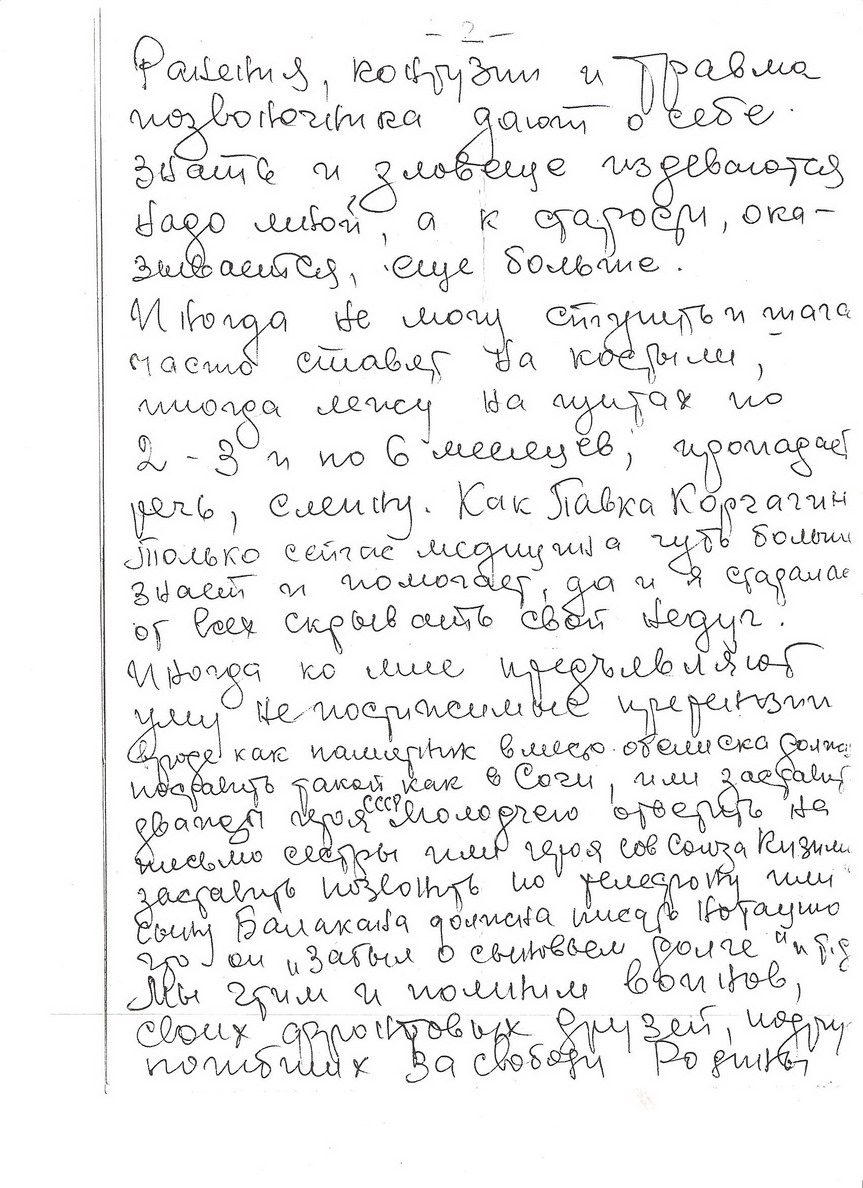 - 2 -
Ранения, контузии и травма
позвоночника дают о себе
знать и зловеще издеваются
надо мной, а к старости, ока-
зывается, еще больше.
Иногда не могу ступить и шага
часто ставят на костыли,
иногда лежу на щитах по
2 - 3 и по 6 месяцев, пропадает
речь, слепну. Как Павка Корчагин
только сейчас медицина чуть больше
знает и помогает, да и я старалас
от всех скрывать свой недуг.
Иногда ко мне предъявляют
уму непостижимые претензии
вроде как памятник вместо обелиска должна
поставить такой как в Сочи, или заставит
дважды героя СССР Молодчего ответить на
письмо сестры или героя сов союза
заставить позвонить по телефону или
сыну Балакана должна писать нотацию
что он "Забыл о сыновьем долге" и т.д
Мы чтим и помним воинов,
своих фронтовых друзей, подруг
погибших за свободу Родины